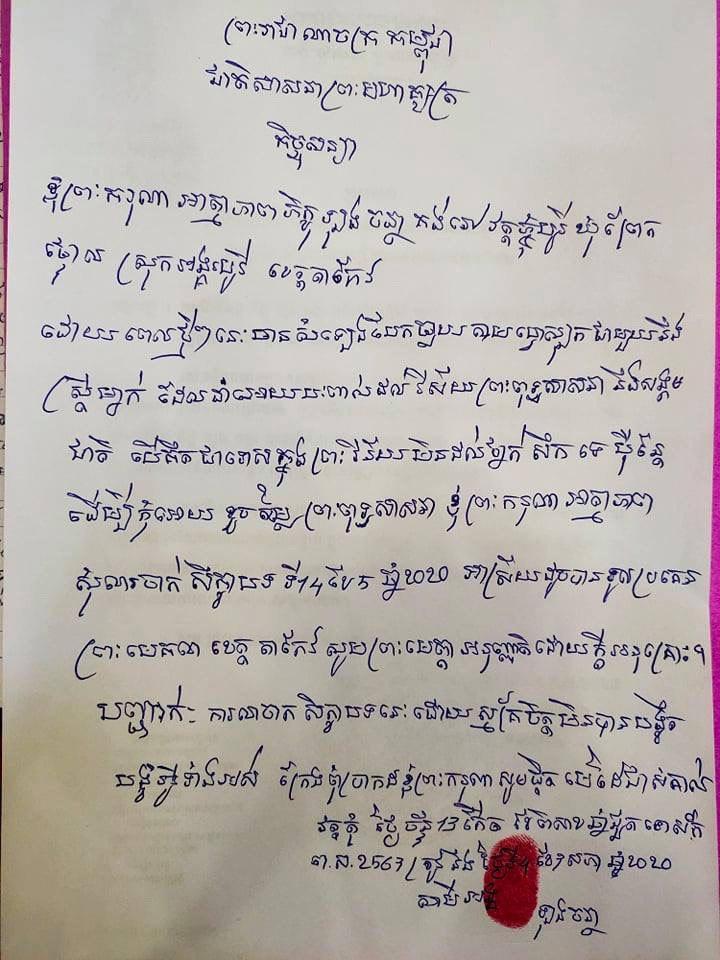 ព្រះរាជាណាចក្រកម្ពុជា
ជាតិសាសនាព្រះមហាក្សត្រ
កិច្ចសន្យា
ខ្ញុំព្រះករុណា អាត្មាភាព ភិក្ខុ ឡុង ចន្ថា គង់នៅ វត្តភ្នំបូរី ឃុំ ព្រែក
ផ្ទោល ស្រុកអង្គរបូរី ខេត្តតាកែវ
ដោយ ពេលថ្មីៗនេះ មានសំឡេងបែកធ្លាយ តាមហ្វេសប៊ុក ជាមួយនឹង
ស្ត្រីម្នាក់ ដែលនាំអោយប៉ះពាល់ដល់ វិស័យព្រះពុទ្ធសាសនា និងសង្គម
ជាតិ បើគិតជាទោសក្នុងព្រះវិន័យមិនដល់ថ្នាក់ សឹក ទេ ប៉ុន្តែ
ដើម្បីកុំអោយ ខូចតម្លៃ ព្រះពុទ្ធសាសនា ខ្ញុំព្រះករុណា អាត្មាភាព
សុំលាចាក់ សិក្ខាបទ ទី14 ខែ5 ឆ្នាំ២០២០ អាស្រ័យដូចបានទូលប្រគេន
ព្រះមេគណ ខេត្ត តាកែវ សូមព្រះមេត្តា អនុញ្ញាតិដោយក្តីអនុគ្រោះ។
បញ្ជាក់: ការលាចាក សិក្ខាបទនេះ ដោយស្ម័គ្រចិត្តមិនបានបង្ខិត
បង្ខំអ្វីទាំងអស់ ក្រែងពុំប្រាកដខ្ញុំព្រះករុណា សូមផ្តិត មេដៃជាសំគាល់
វត្តភ្នំ ថ្ងៃ ច័ន្ទ 13 កើត ខែពិសាខ ឆ្នាំជូត ទោស័ក
ព.ស.2563 ត្រូវនឹង ថ្ងៃទី4 ខែ5 ឆ្នាំ២០២០
ឡុង ចន្ថា